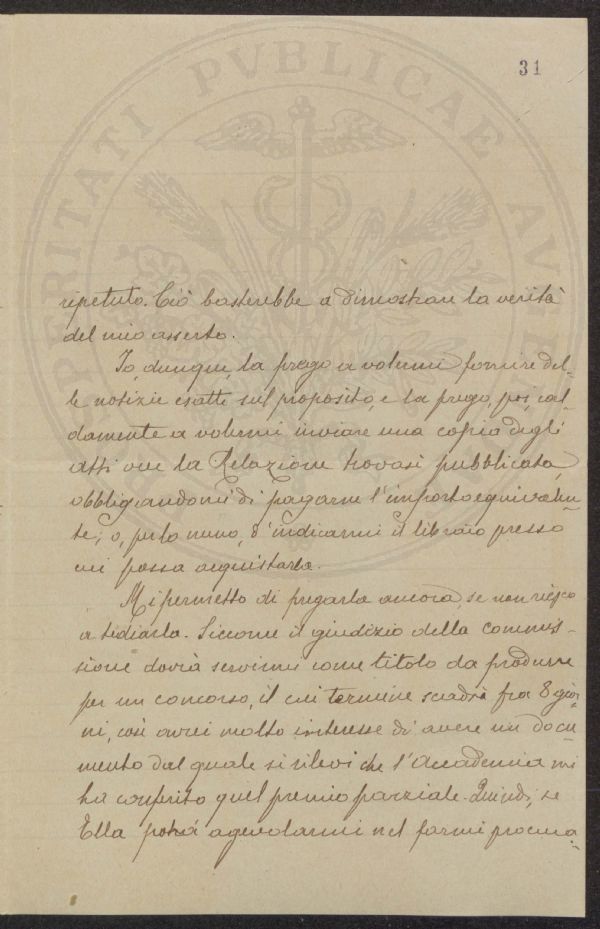 31
PROSPERITATI PVBLICAE AVGENDAE
ripetuto. Ciò basterebbe a dimostrare la verità
del mio asserto.
Io, dunque, la prego a volermi fornire del-
le notizie esatte sul proposito, e la prego, poi, cal-
damente a volermi inviare una copia degli
Atti ove la Relazione trovasi pubblicata,
obbligandomi di pagarne l'importo equivalen-
te; o, per lo meno, d'indicarmi il libraio presso
cui possa acquistarla.
Mi permetto di pregarla ancora, se non riesco
a tediarla. Siccome il giudizio della commis-
sione dovrà servirmi come titolo da produrre
per un concorso, il cui termine scadrà fra 8 gior-
ni, così avrei molto interesse di avere un docu-
mento dal quale si rilevi che l'Accademia mi
ha conferito quel premio parziale. Quindi, se
Ella potrà agevolarmi nel farmi procura-